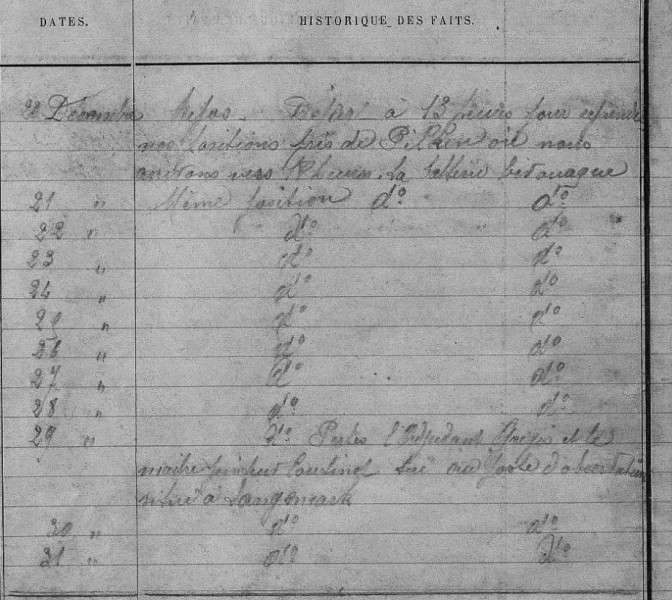 DATES. HISTORIQUE DES FAITS.
20 Décembre Repos. Départ à 13 heures pour reprendre
nos positions près de Pilken où nous
arrivons vers heures. La batterie bivouaque
21 " Même position d° d°
22 " d° d°
23 " d° d°
24 " d° d°
25 " d° d°
26 " d° d°
27 " d° d°
28 " d° d°
29 " d° Pertes l'Adjudant et le
maitre pointeur tué au poste d'observation
situé à Langemarck
30 " d° d°
31 " d° d°